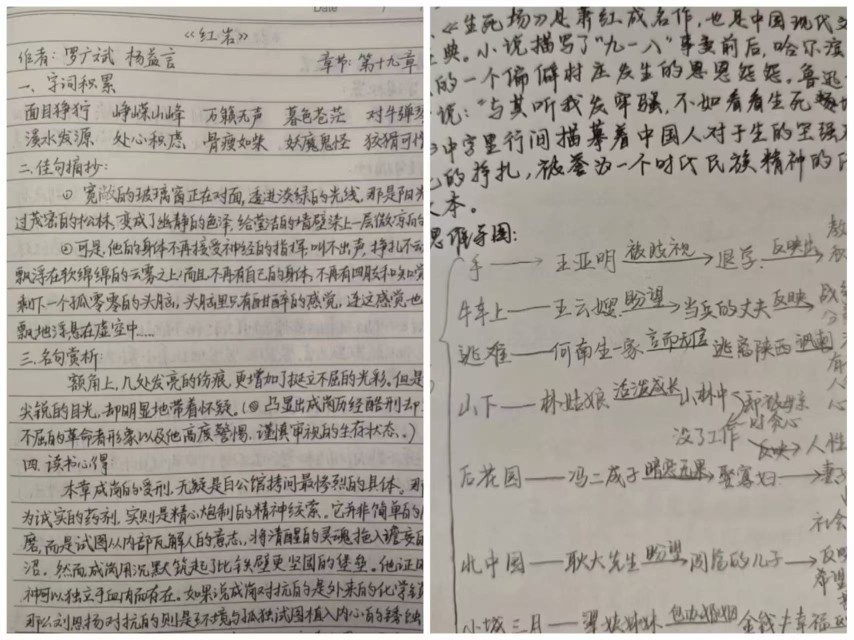 Date
《红岩》
作者：罗广斌 杨益言 章节：第十九章
一、字词积累
面目狰狞 峥嵘山峰 万籁无声 暮色苍茫 对牛弹
溪水发源 处心积虑 骨瘦如柴 妖魔鬼怪 狡猾可
二、佳句摘抄：
① 宽敞的玻璃窗正在对面，透进淡绿的光线。那是阳光
过茂密的松林，变成了幽静的色泽，给莹洁的墙壁染上一层
②可是，他的身体不再接受神经的指挥，叫不出声，挣扎不动
飘浮在软绵绵的云雾之上；而且不再有自己的身体，不再有四肢和知觉
剩下一个孤零零的头脑，头脑里只有酣醉的感觉，连这感觉也
飘地浮悬在虚空中……
三、名句赏析：
额角上，几处发亮的伤痕，更增加了挺立不屈的光彩。但是
尖锐的目光，却明显地带着怀疑。（凸显出成岗历经酷刑却
不屈的革命者形象以及他高度警惕、谨慎审视的生存状态。）
四、读书心得
本章成岗的受刑，无疑是白公馆拷问最惨烈的具体。那
为诚实的药剂，实则是精心炮制的精神绞索。它并非简单的
磨，而是试图从内部瓦解人的意志，将清醒的灵魂拖入谵妄的
沼。然而成岗用沉默筑起了比铁壁更坚固的堡垒。他证
神可以独立于血肉而存在。如果说成岗对抗的是外来的化学
那么刘思扬对抗的则是环境与孤独试图植入内心的
《生死场》是萧红成名作，也是中国现代文
典。小说描写了“九一八”事变前后，哈尔滨
的一个偏僻村庄发生的恩恩怨怨。鲁迅
说：“与其听我发牢骚，不如看看生死场
中字里行间描摹着中国人对于生的坚强
的挣扎，被誉为一个时代民族精神的
本。
思维导图：
手 → 王亚明 被歧视 → 退学 反映出
牛车上 — 王云嫂 盼望 → 当兵的丈夫 反映
逃难 — 何南生一家 逃离陕西
山下 — 林姑娘 山林中
没了工作 反映 → 人性
后花园 — 冯二成子 暗恋无果 → 娶寡妇 →
社会
北中国 — 耿大先生 盼望 的儿子 →
希望
小城三月